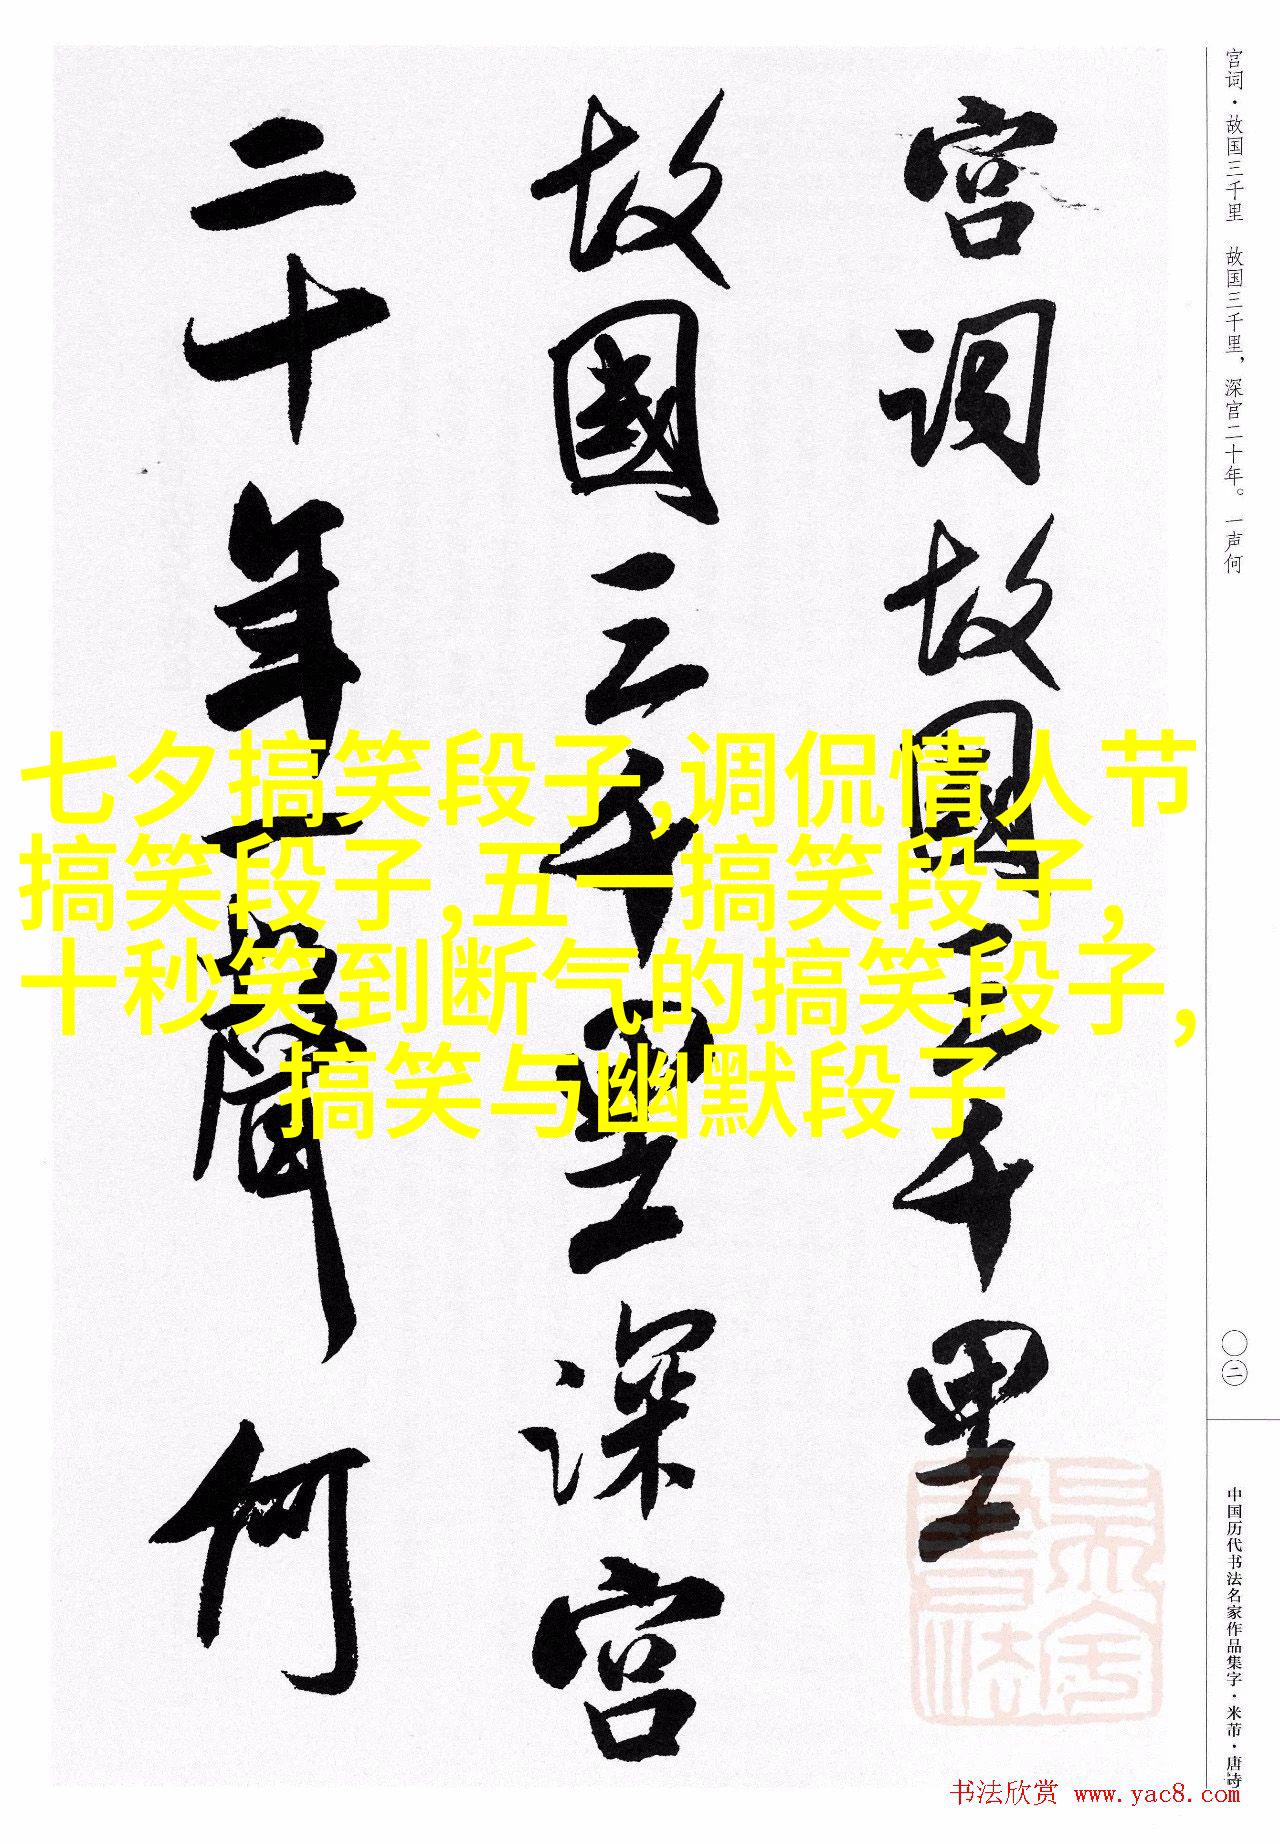 宫词·故国三千里　故国三千里，深宫二十年。一声何
宫词故國三千里
故國三千里深宫
二十年一聲何
七夕搞笑段子,调侃情人节
搞笑段子,五一搞笑段子,
十秒笑到断气的搞笑段子,
搞笑与幽默段子
〇二
中国历代书法名家作品集字·米芾·唐诗
书法欣赏 www.yac8.com